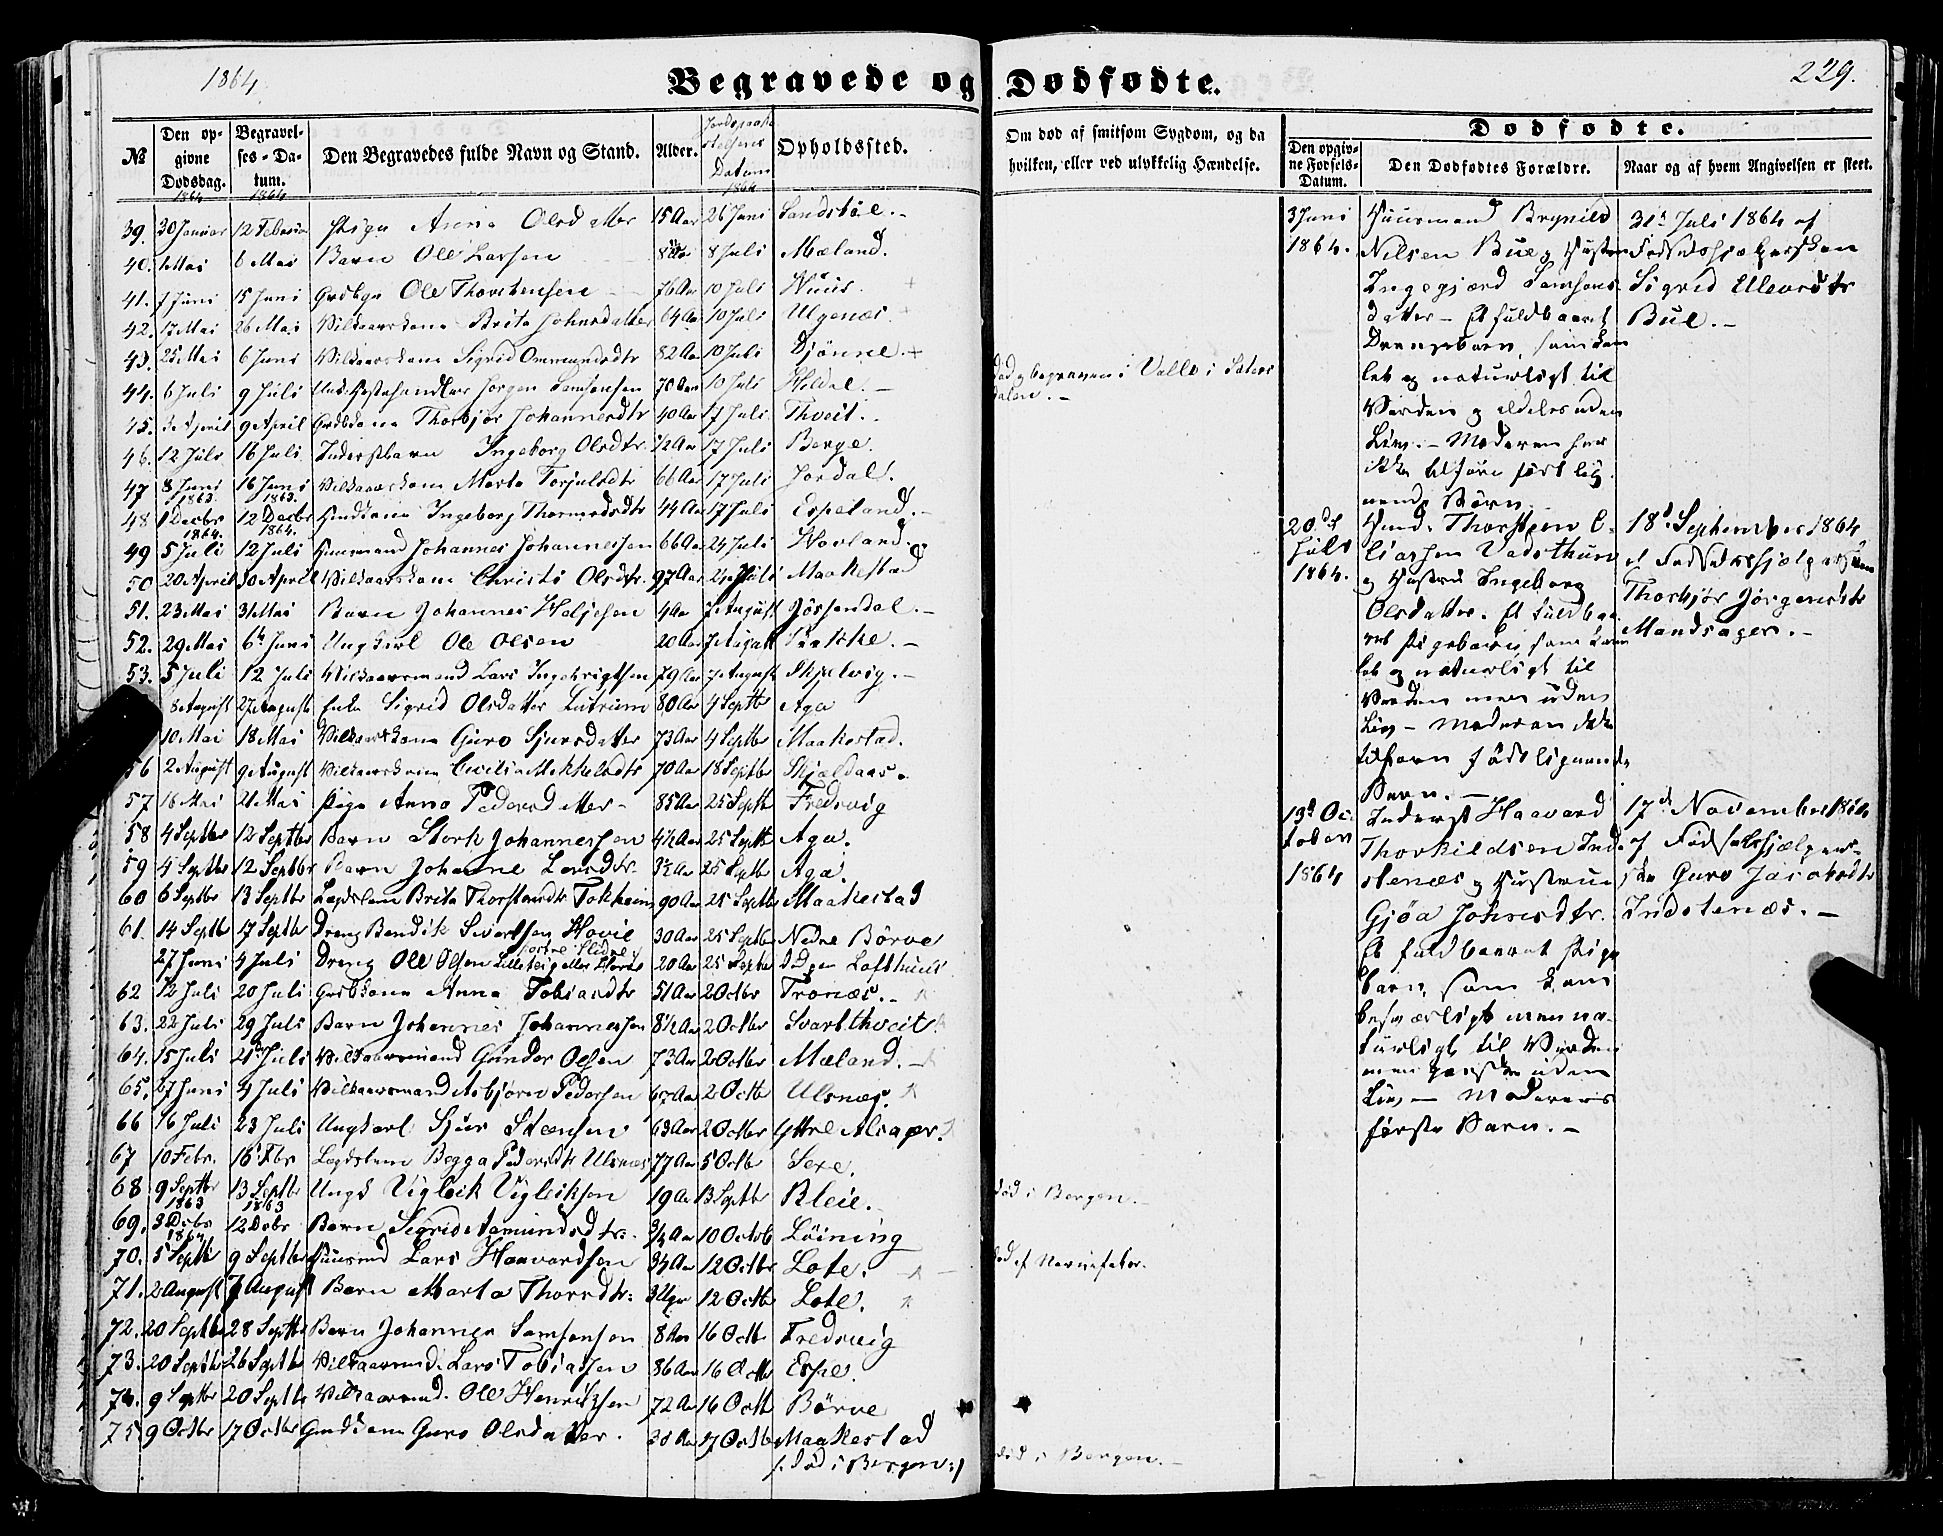 1864
Begravede og Dødfødte.
229.
№
Den opgivne Dødsdag. 1864
Begravelses-Datum. 1864
Den Begravedes fulde Navn og Stand.
Alder.
Jordpaakastelsens Datum 1864
Opholdssted.
Om død af smitsom Sygdom, og da hvilken, eller ved ulykkelig Hændelse.
Dødfødte.
Den opgivne Fødsels-Datum.
Den Dødfødtes Forældre.
Naar og af hvem Angivelsen er skeet.
39. 30 Januar 12 Februar Pige Anna Olsdatter 15 Aar 26 Juni Sandstøl.-
40. 1 Mai 6 Mai Barn Ole Larsen 8 Aar 8 Juli Mæland.
41. 7 Juni 15 Juni Grdbgr Ole Thorstensen 76 Aar 10 Juli Nuus.
42. 17 Mai 26 Mai Vilkaarskone Brita Johnsdatter 64 Aar 10 Juli Ulgenæs.
43. 25 Mai 6 Juni Vilkaarskone Sigrid Ommundsdtr 82 Aar 10 Juli Djönne.
44. 6 Juli 9 Juli Hestehandler Jörgen Samsonsen 70 Aar 10 Juli Hildal. - død og begraven i Valle i Sætersdalen.-
45. 3 April 9 April Grdbkone Thorbjør Johannesdtr 40 Aar 17 Juli Thveit.
46. 12 Juli 16 Juli Inderstbarn Ingeborg Olsdtr. 1/2 Aar 17 Juli Berge.
47 8 Juni 16 Juni Vilkaarskone Marta Torjulsdtr 66 Aar 17 Juli Jordal.
48. 1863. 1 Decbr 1863. 12 Decbr Huuskone Ingeborg Thormodsdtr 44 Aar 17 Juli Espeland.-
49 1864. 5 Juli 1864. 12 Juli Huusmand Johannes Johannessen 66 Aar 24 Juli Hovland.
50 20 April 30 April Vilkaarskone Christi Olsdtr. 97 Aar 24 Juli Maakestad
51. 23 Mai 31 Mai Barn Johannes Heljesen 4 Aar 7 August Jössendal.-
52. 29 Mai 6 Juni Ungkarl Ole Olsen 20 Aar 7 August
53. 5 Juli 12 Juli Vilkaarsmand Lars Ingebrigtsen 79 Aar 7 August Skjelvig.-
8 August 27 August Enke Sigrid Olsdatter Lutrum 80 Aar 4 Septbr Aga
10 Mai 18 Mai Vilkaarskone Guro Sjursdatter 73 Aar 4 Septbr Maakestad.
56 2 August 9 August Vilkaarskone Cecilia Mikkelsdtr 70 Aar 18 Septbr Skjeldaas.
57 16 Mai 21 Mai Pige Anna Pedersdatter- 85 Aar 25 Septbr Fredvig
58 4 Septbr 12 Septbr Barn Stork Johannessen 4 1/2 Aar 25 Septbr Aga.
59 4 Septbr 12 Septbr Barn Johanne Larsdtr. 3 1/2 Aar 25 Septbr Aga.
60 6 Septbr 13 Septbr Lægdslem Brita Thorstensdtr Tokheim 90 Aar 25 Septbr Maakestad
61. 14 Septbr 17 Septbr Dreng Bendik Sivertsen Hovie 30 Aar 25 Septbr Nedre Börve
27 Juni 4 Juli Dreng Ole Olsen 20 Aar 25 Septbr Lofthuus
62 12 Juli 20 Juli Grdbkone Anna Tobiasdtr 51 Aar 2 Octbr Tronæs.-
63. 22 Juli 29 Juli Barn Johannes Johannessen 8 1/2 Aar 2 Octbr Svartthveit
64. 15 Juli 21 Juli Vilkaarsmand Gunder Olsen 73 Aar 2 Octbr Mæland.-
65. 27 Juni 4 Juli Vilkaarsmand Asbjörn Pedersen 67 Aar 2 Octbr Ulsnæs.
66 16 Juli 23 Juli Ungkarl Sjur Steensen 63 Aar 2 Octbr Yttre Alsager.
67 10 Febr. 16 Fbr Lægdslem Begga Pedersdtr Ulsnæs 77 Aar 5 Octbr Sexe.
68. 9 Septbr 13 Septbr Ungd Vigleik Vigleiksen 19 Aar 13 Septbr Kleie. - død i Bergen.-
69. 1863 3 Dcbr 1863 12 Dcbr Barn Sigrid Aamundsdtr. 3/4 Aar 10 Octob Löining
70. 1864 5 Septb 9 Septbr Huusmd Lars Haavardsen 34 Aar 12 Octbr Lote. død af Nervefeber.
71. 2 August 7 August Barn Marta Thorsdtr. 3 Uger 12 Octbr Lote.
72. 20 Septbr 28 Septbr Barn Johannes Samsonsen 8 Aar 16 Octbr Fredvig
73. 20 Septbr 26 Septbr Vilkaarsmd. Lars Tobiassen 86 Aar 16 Octbr Espe.
74. 9 Septbr 20 Septbr Vilkaarsmd. Ole Henriksen 72 Aar 16 Octbr Börve
75 9 Octbr 17 Octbr Grdbkone Guro Olsdatter. 38 Aar 17 Octbr Maakestad /: död i Bergen :/ død i Bergen.-
3 Juni 1864.
Huusmand Brynild
Nilsen Bue og Hustru
Ingegjærd Samsons-
datter - Et fuldbaaret
Drengebarn, som kom
let og naturligt til
Verden og aldeles uden
Liv. - Moderen har
ikke tilforn født lig-
nende Børn.
31te Juli 1864 af
Fødselshjælpersken
Sigrid Ulevrsdtr
Bue.-
20de Juli 1864.
Huusmd. Thorsten E-
liassen Vadsthun
og Hustru Ingeborg
Olsdatter. Et fuldbaa-
ret Pigebarn, som kom
let og naturligt til
Verden men uden
Liv - Moderen ikke
tilforn født lignende
Barn.-
18de September 1864
af Fødselshjælpersken
Thorbjør Jørgensdtr
Mandsager.-
13de October 1864
Inderst Haavard
Thorkildsen Ind-
stenæs og Hustru
Gjöa Johnsdtr.
Et fuldbaaret Pige
barn, som kom
besværligt men na-
turligt til Verden
men ganske uden
Liv - Moderens
første Barn.-
17de November 1864
af Fødselshjælper-
sken Guro Jacobsdtr
Indstenæs.-